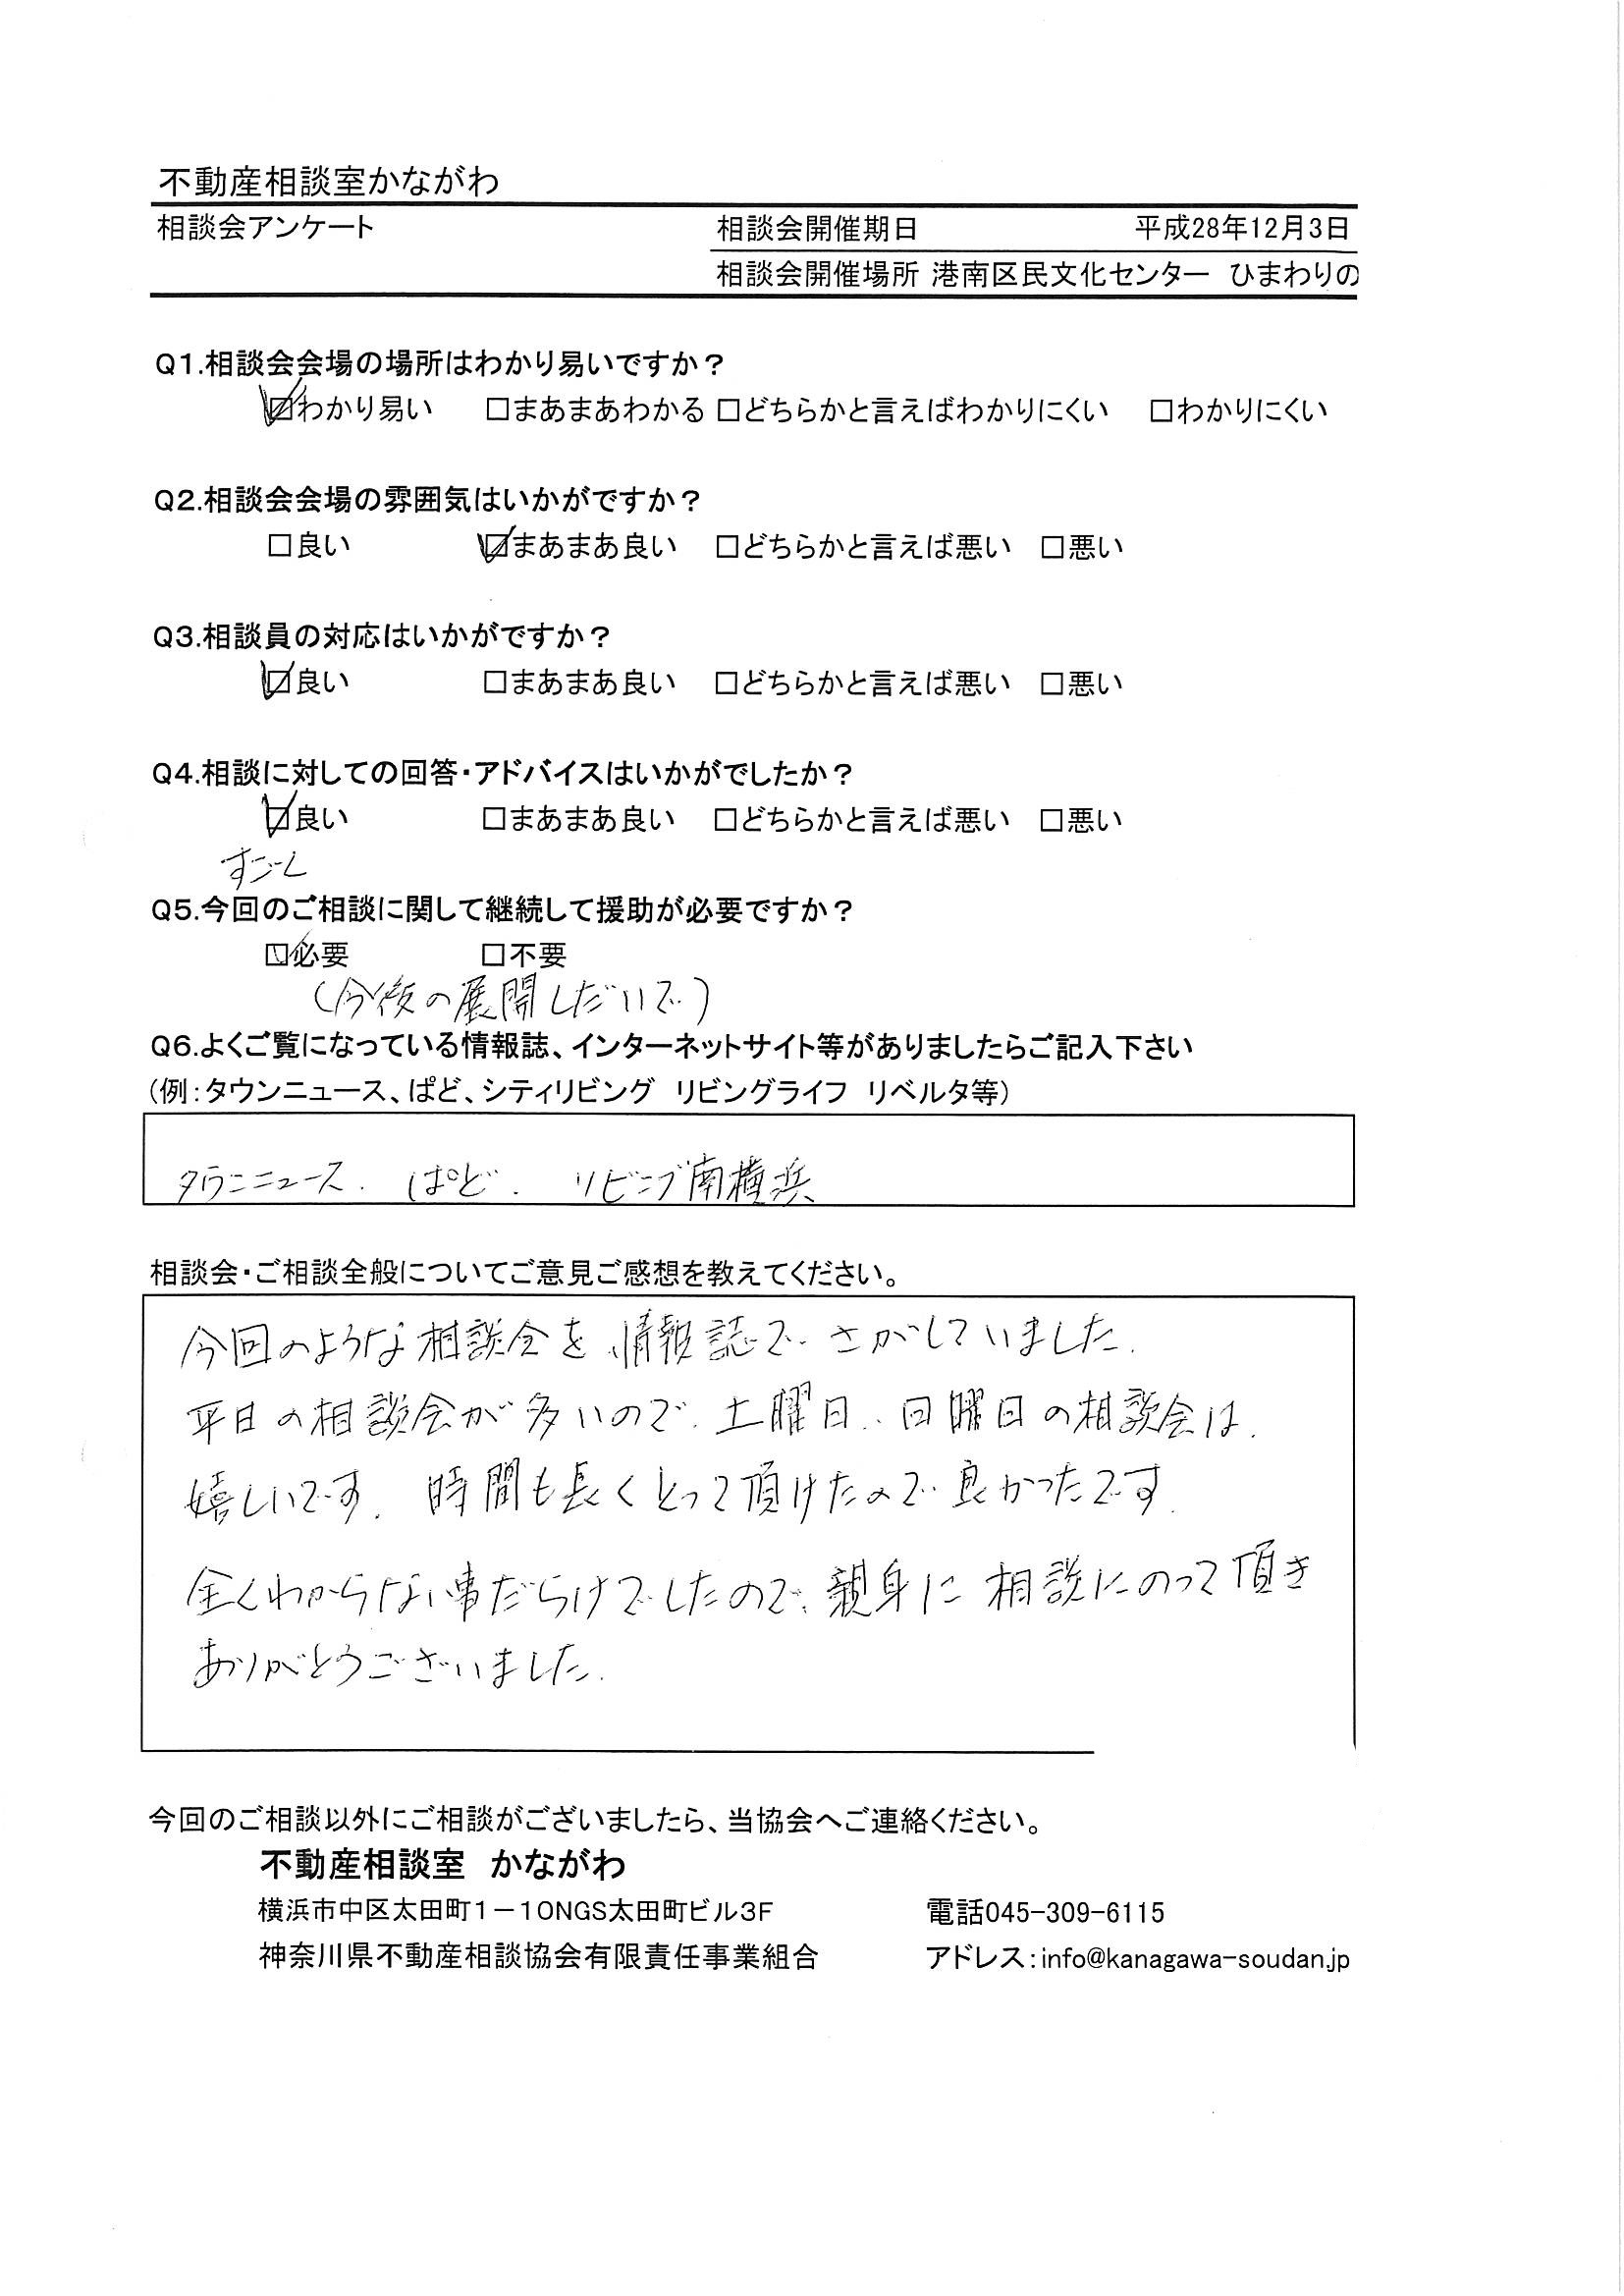 不動産相談室かながわ
相談会アンケート 相談会開催期日 平成28年12月3日
相談会開催場所 港南区民文化センター ひまわりの
Q1.相談会会場の場所はわかり易いですか？
☑わかり易い □まあまあわかる □どちらかと言えばわかりにくい □わかりにくい
Q2.相談会会場の雰囲気はいかがですか？
□良い ☑まあまあ良い □どちらかと言えば悪い □悪い
Q3.相談員の対応はいかがですか？
☑良い □まあまあ良い □どちらかと言えば悪い □悪い
Q4.相談に対しての回答・アドバイスはいかがでしたか？
☑良い □まあまあ良い □どちらかと言えば悪い □悪い
すごーく
Q5.今回のご相談に関して継続して援助が必要ですか？
☑必要 □不要
(今後の展開しだいで)
Q6.よくご覧になっている情報誌、インターネットサイト等がありましたらご記入下さい
(例：タウンニュース、ぱど、シティリビング リビングライフ リベルタ等)
タウンニュース. ぱど. リビング南横浜
相談会・ご相談全般についてご意見ご感想を教えてください。
今回のような相談会を、情報誌で、さがしていました.
平日の相談会が多いので、土曜日、日曜日の相談会は、
嬉しいです. 時間も長くとって頂けたので、良かったです.
全くわからない事だらけでしたので、親身に相談にのって頂き
ありがとうございました.
今回のご相談以外にご相談がございましたら、当協会へご連絡ください。
不動産相談室 かながわ
横浜市中区太田町1－10NGS太田町ビル3F 電話045-309-6115
神奈川県不動産相談協会有限責任事業組合 アドレス：info@kanagawa-soudan.jp